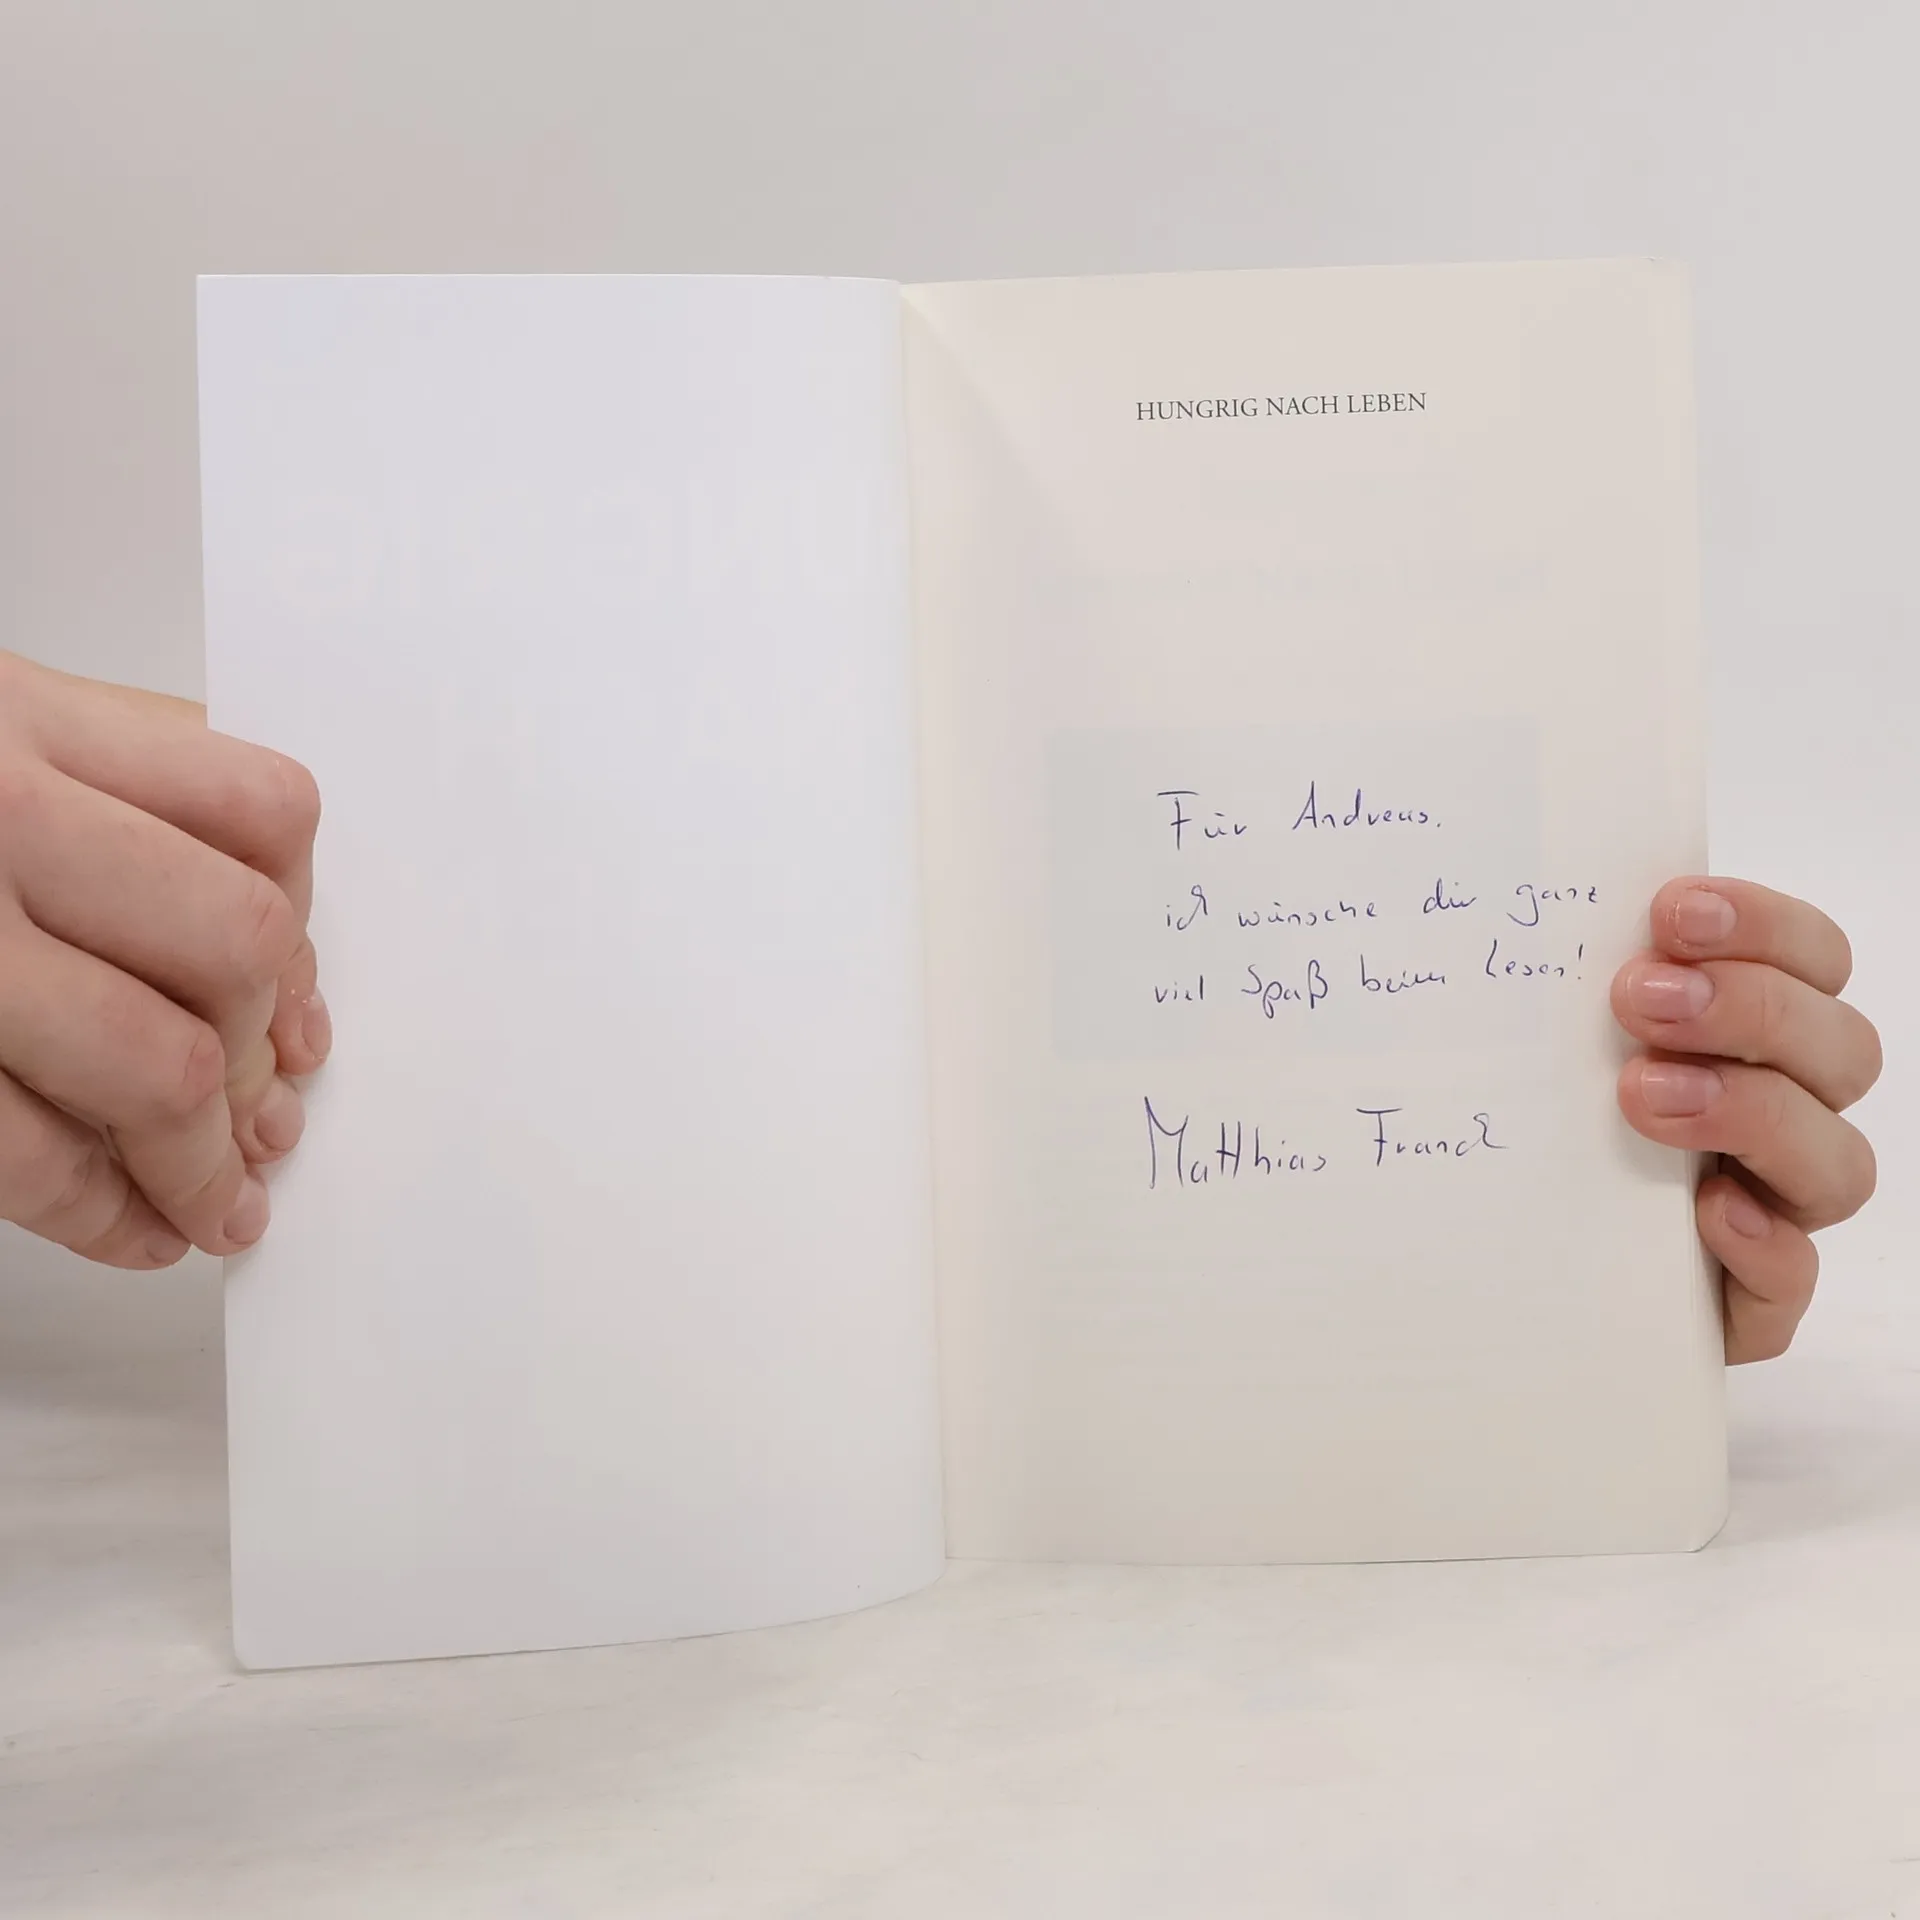 HUNGRIG NACH LEBEN
Für Andreas.
ich wünsche dir ganz
viel Spaß beim Lesen!
Matthias Franck